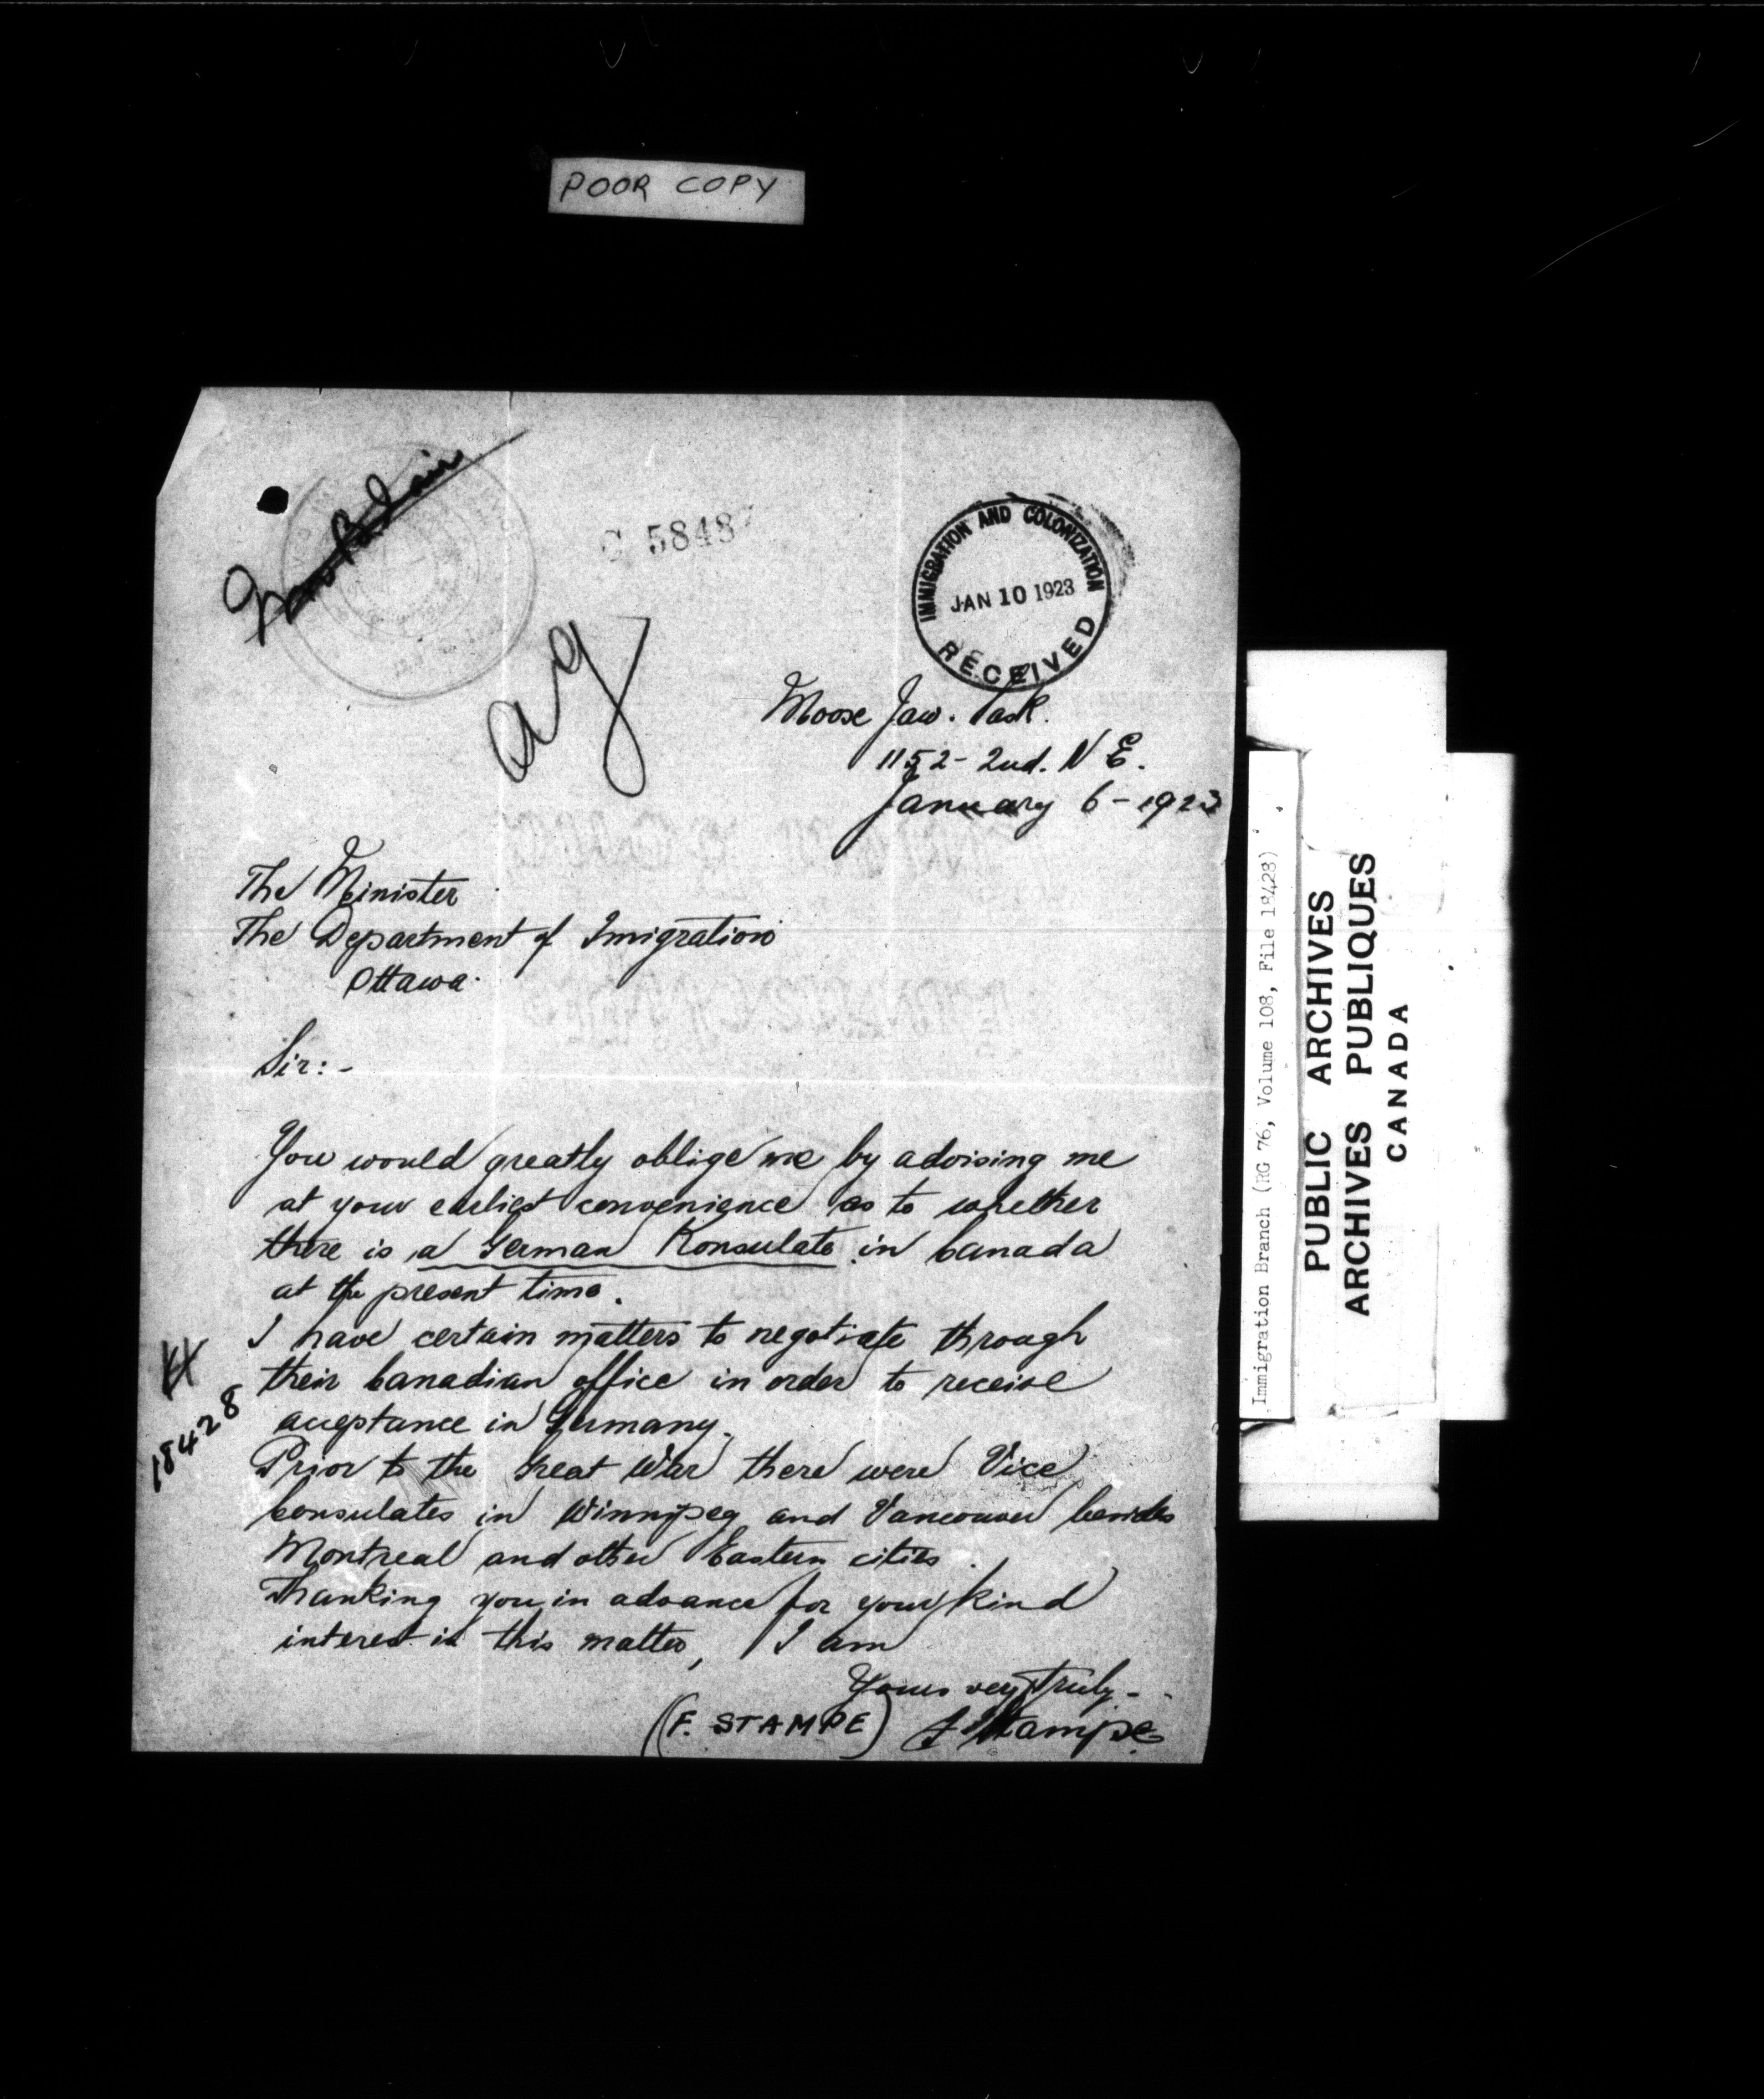 POOR COPY
C 5848
IMMIGRATION AND COLONIZATION
JAN 10 1923
RECEIVED
ag
Moose Jaw. Sask.
1152 - 2nd. N E.
January 6 - 1923
The Minister
The Department of Imigration
Ottawa.
Sir: -
You would greatly oblige me by advising me
at your earliest convenience as to whether
there is a German Konsulate in Canada
at the present time.
I have certain matters to negotiate through
their Canadian office in order to receive
acceptance in Germany.
Prior to the Great War there were Vice
Consulates in Winnipeg and Vancouver besides
Montreal and other Eastern cities.
Thanking you in advance for your kind
interest in this matter, I am
Yours very truly -
(F. STAMPE) F Stampe
18428
Immigration Branch (RG 76, Volume 108, File 18428)
PUBLIC ARCHIVES
ARCHIVES PUBLIQUES
CANADA